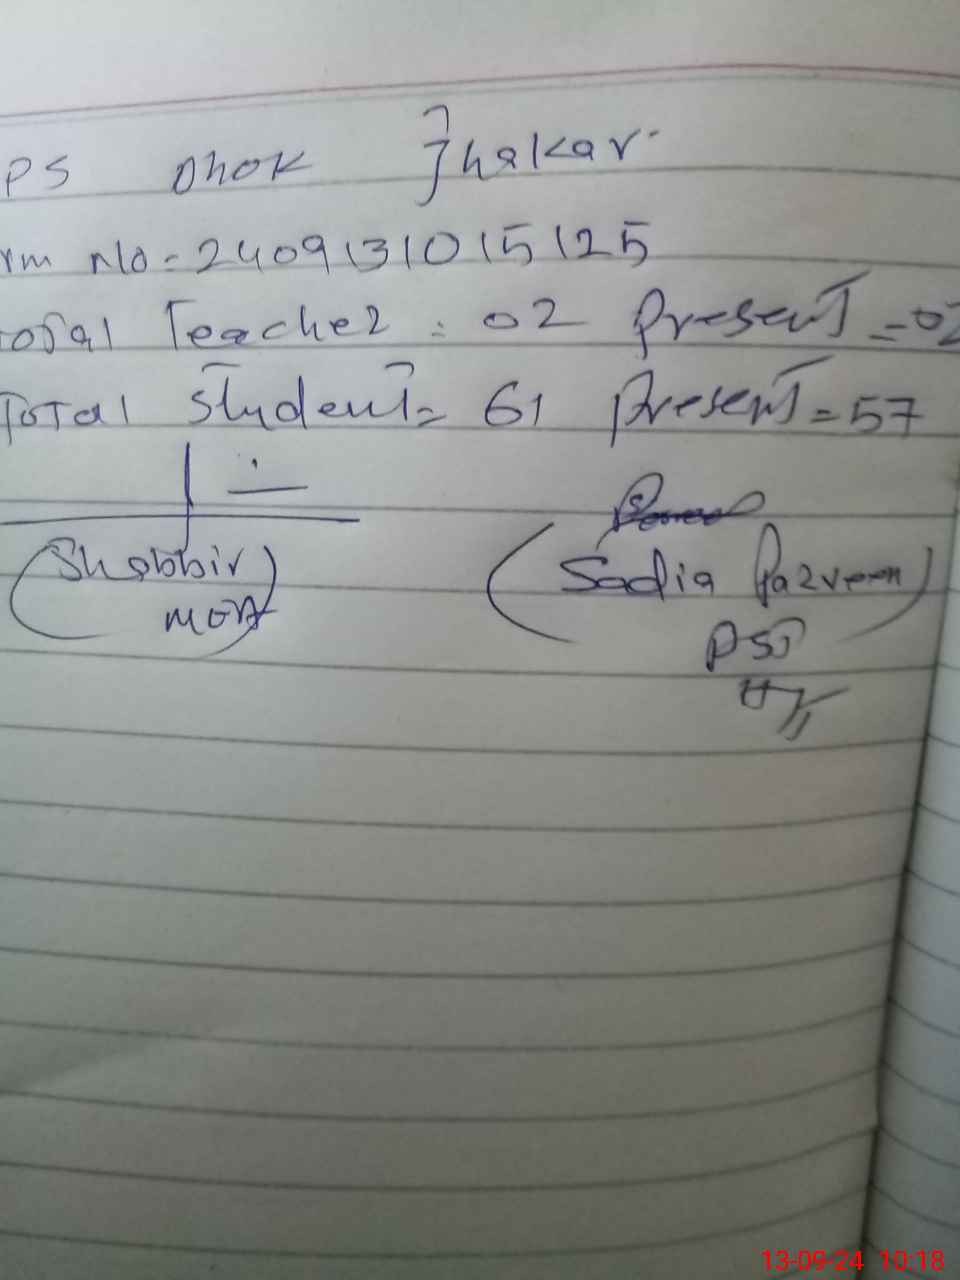 PS Dhok Jhakar
rm No = 2409131015125
Total Teacher = 02 Present = 02
Total Student = 61 Present = 57
(Shabbir
MEA)
(Sadia Parveen)
PST
13-09-24 10:18